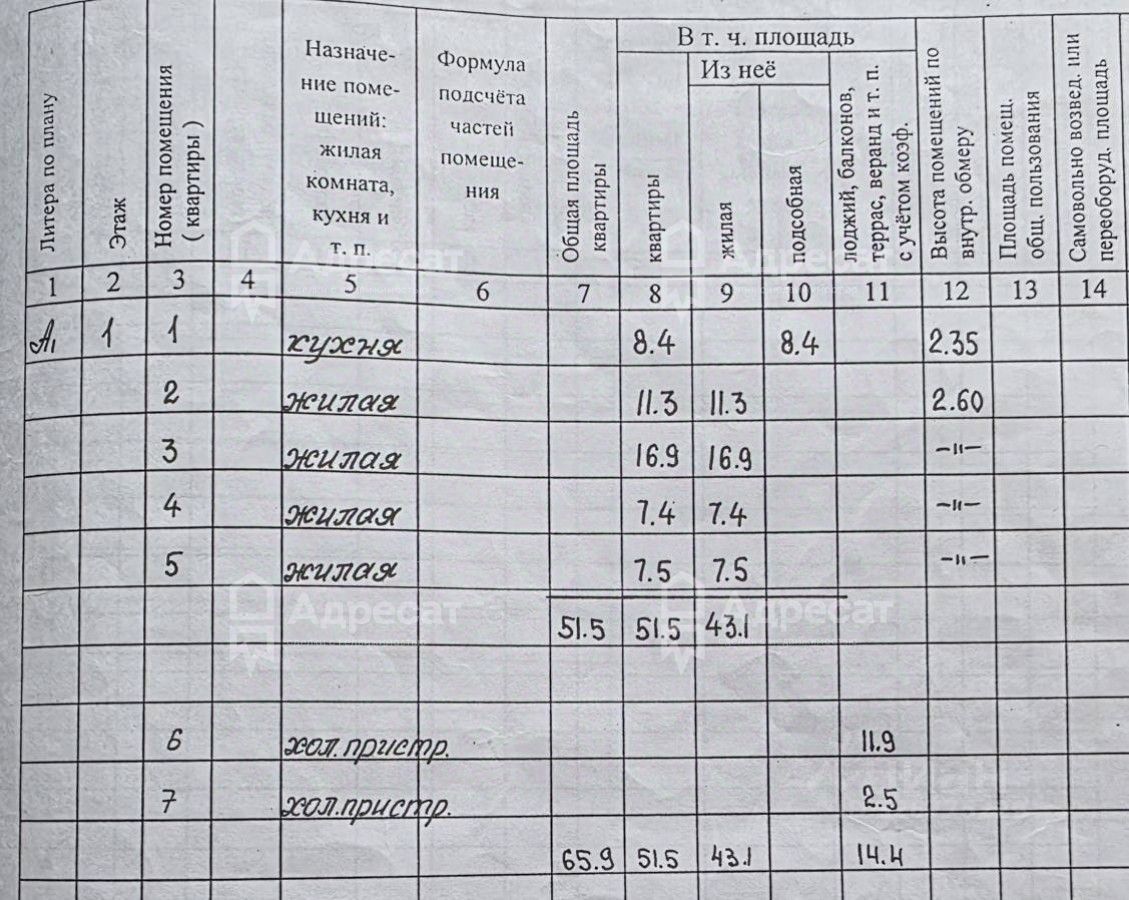 В т. ч. площадь
Из неё
Литера по плану
Этаж
Номер помещения
( квартиры )
Назначе-
ние поме-
щений:
жилая
комната,
кухня и
т. п.
Формула
подсчёта
частей
помеще-
ния
Общая площадь
квартиры
квартиры
жилая
подсобная
лоджий, балконов,
террас, веранд и т. п.
с учётом коэф.
Высота помещений по
внутр. обмеру
Площадь помещ.
общ. пользования
Самовольно возвед. или
переоборуд. площадь
1 2 3 4 5 6 7 8 9 10 11 12 13 14
А₁ 1 1 кухня 8.4 8.4 2.35
2 жилая 11.3 11.3 2.60
3 жилая 16.9 16.9 –"–
4 жилая 7.4 7.4 –"–
5 жилая 7.5 7.5 –"–
51.5 51.5 43.1
6 хол. пристр. 11.9
7 хол. пристр. 2.5
65.9 51.5 43.1 14.4
Адресат
Адресат
Адресат
Адресат